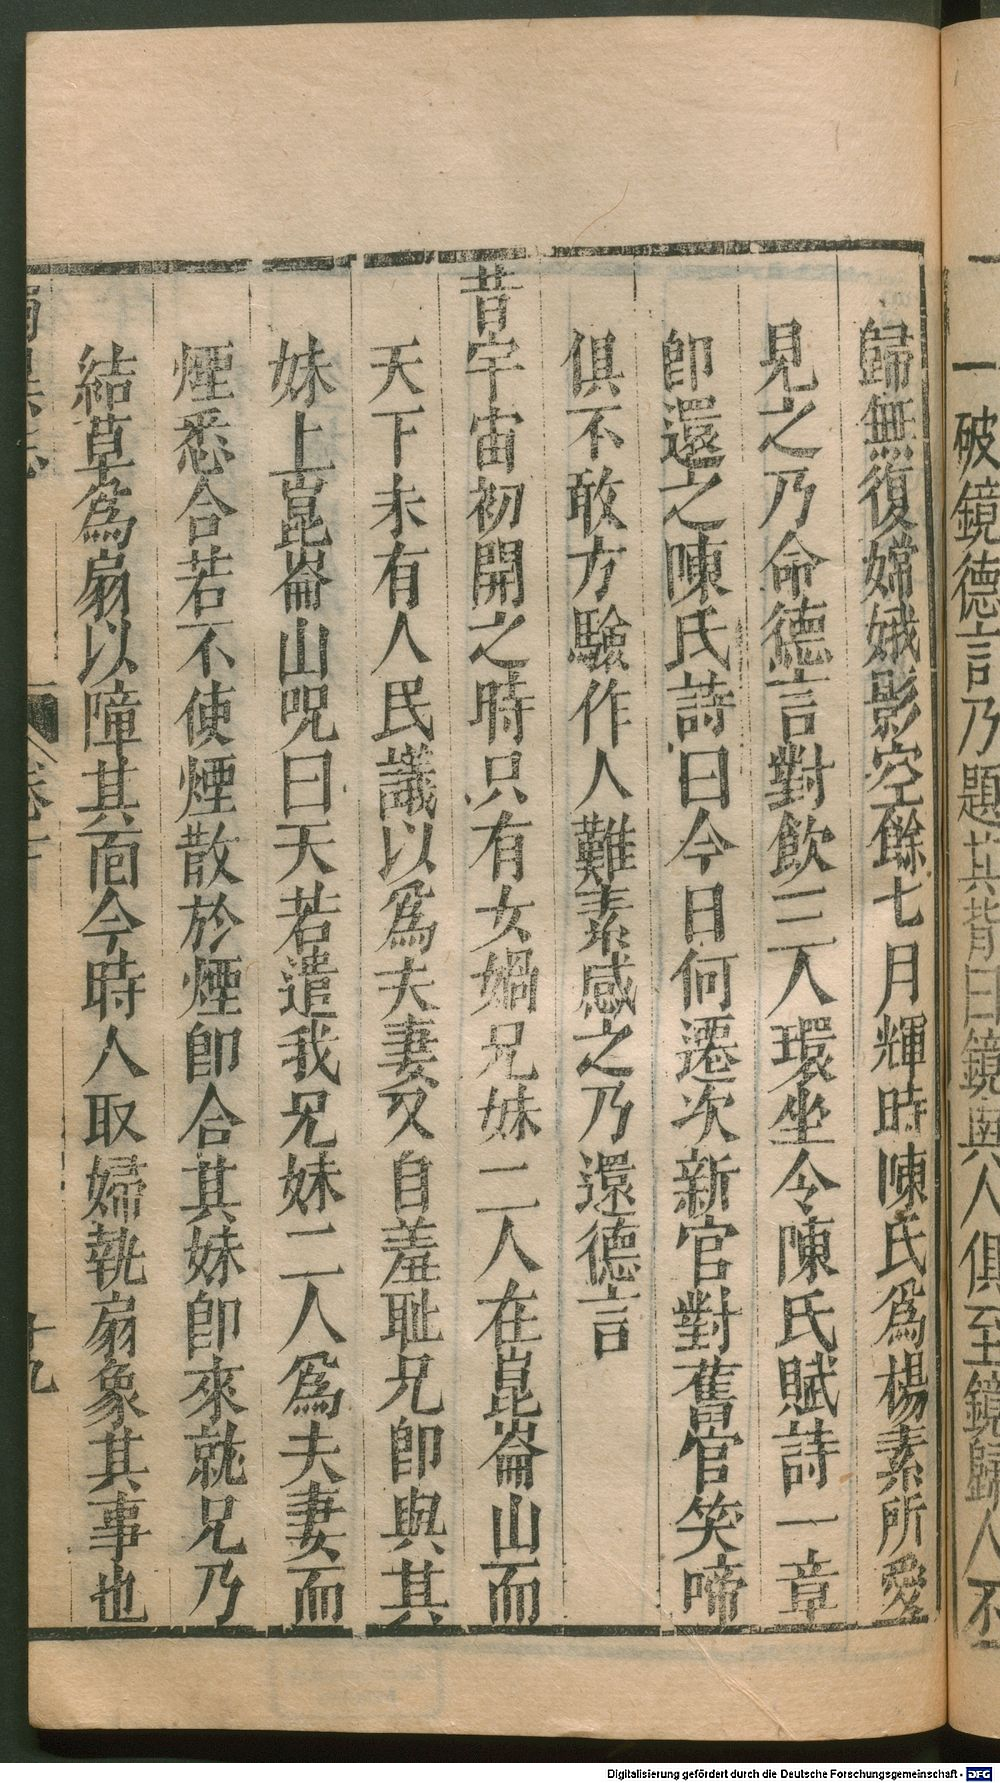 一破鏡德言乃題其背曰鏡與人俱至鏡歸人不
歸無復嫦娥影空餘七月輝時陳氏爲楊素所愛
見之乃命德言對飲三人環坐令陳氏賦詩一章
即還之陳氏詩曰今日何遷次新官對舊官笑啼
俱不敢方驗作人難素感之乃還德言
昔宇宙初開之時只有女媧兄妹二人在崑崙山而
天下未有人民議以爲夫妻又自羞耻兄即與其
妹上崑崙山呪曰天若遣我兄妹二人爲夫妻而
煙悉合若不使煙散於煙即合其妹即來就兄乃
結草爲扇以障其面今時人取婦執扇象其事也
卷下
十九
Digitalisierung gefördert durch die Deutsche Forschungsgemeinschaft - DFG